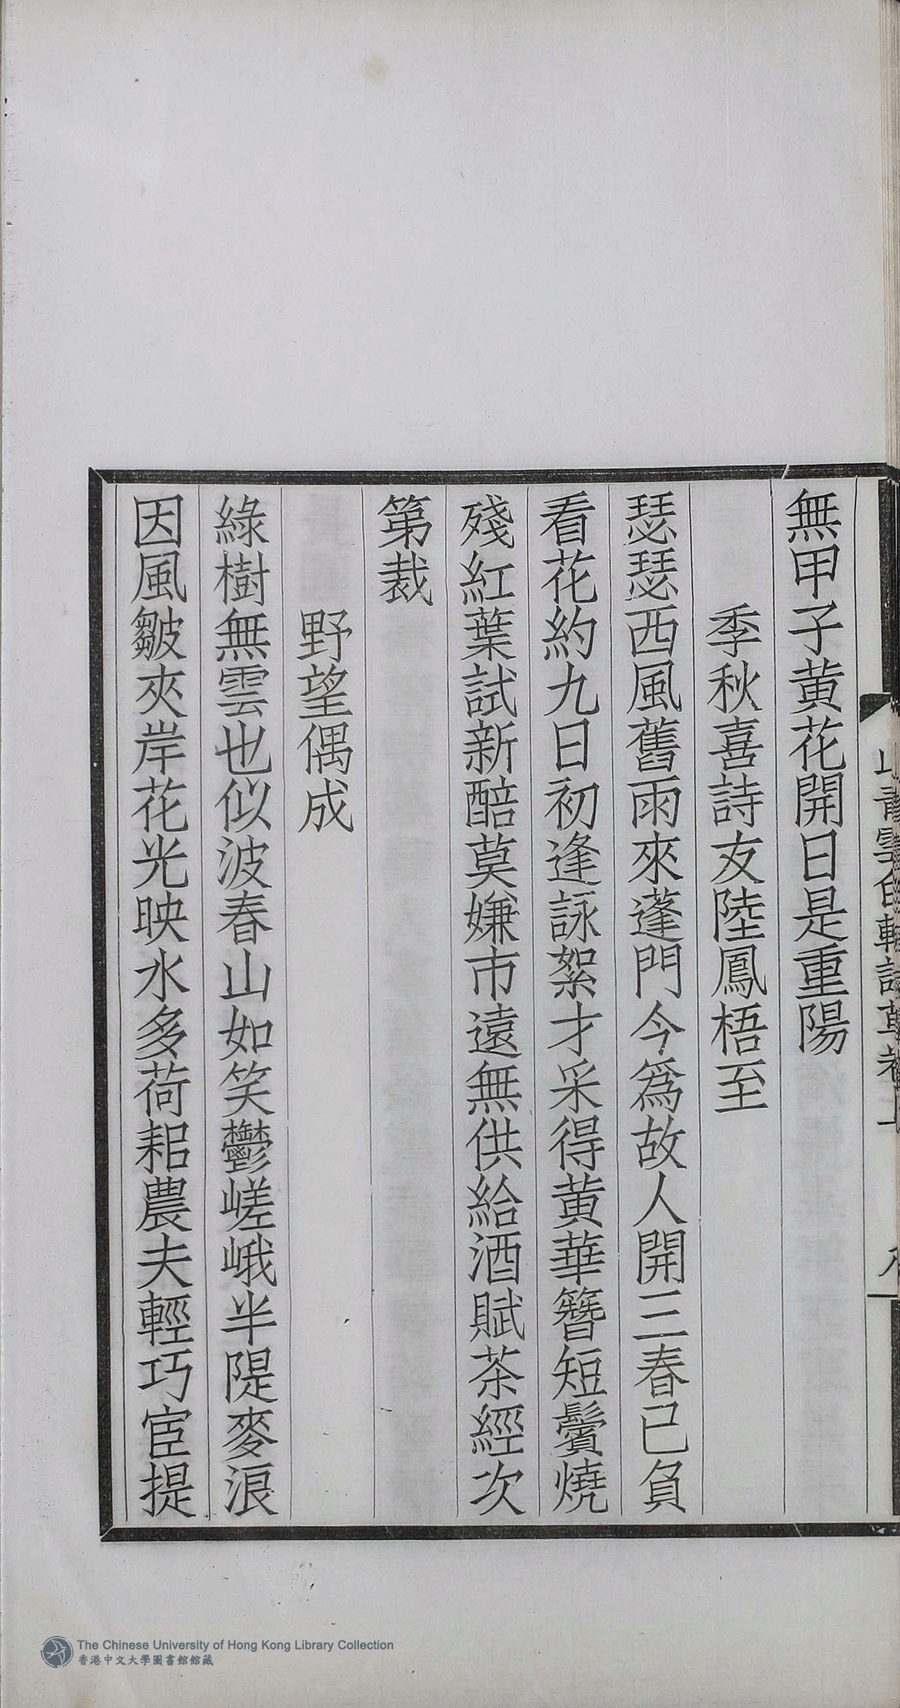 無甲子黄花開日是重陽
季秋喜詩友陸鳳梧至
瑟瑟西風舊雨來蓬門今爲故人開三春已負
看花約九日初逢詠絮才采得黄華簪短鬢燒
殘紅葉試新醅莫嫌市遠無供給酒賦茶經次
第裁
野望偶成
綠樹無雲也似波春山如笑鬱嵯峨半隄麥浪
因風皺夾岸花光映水多荷耜農夫輕巧宦提
The Chinese University of Hong Kong Library Collection
香港中文大學圖書館館藏